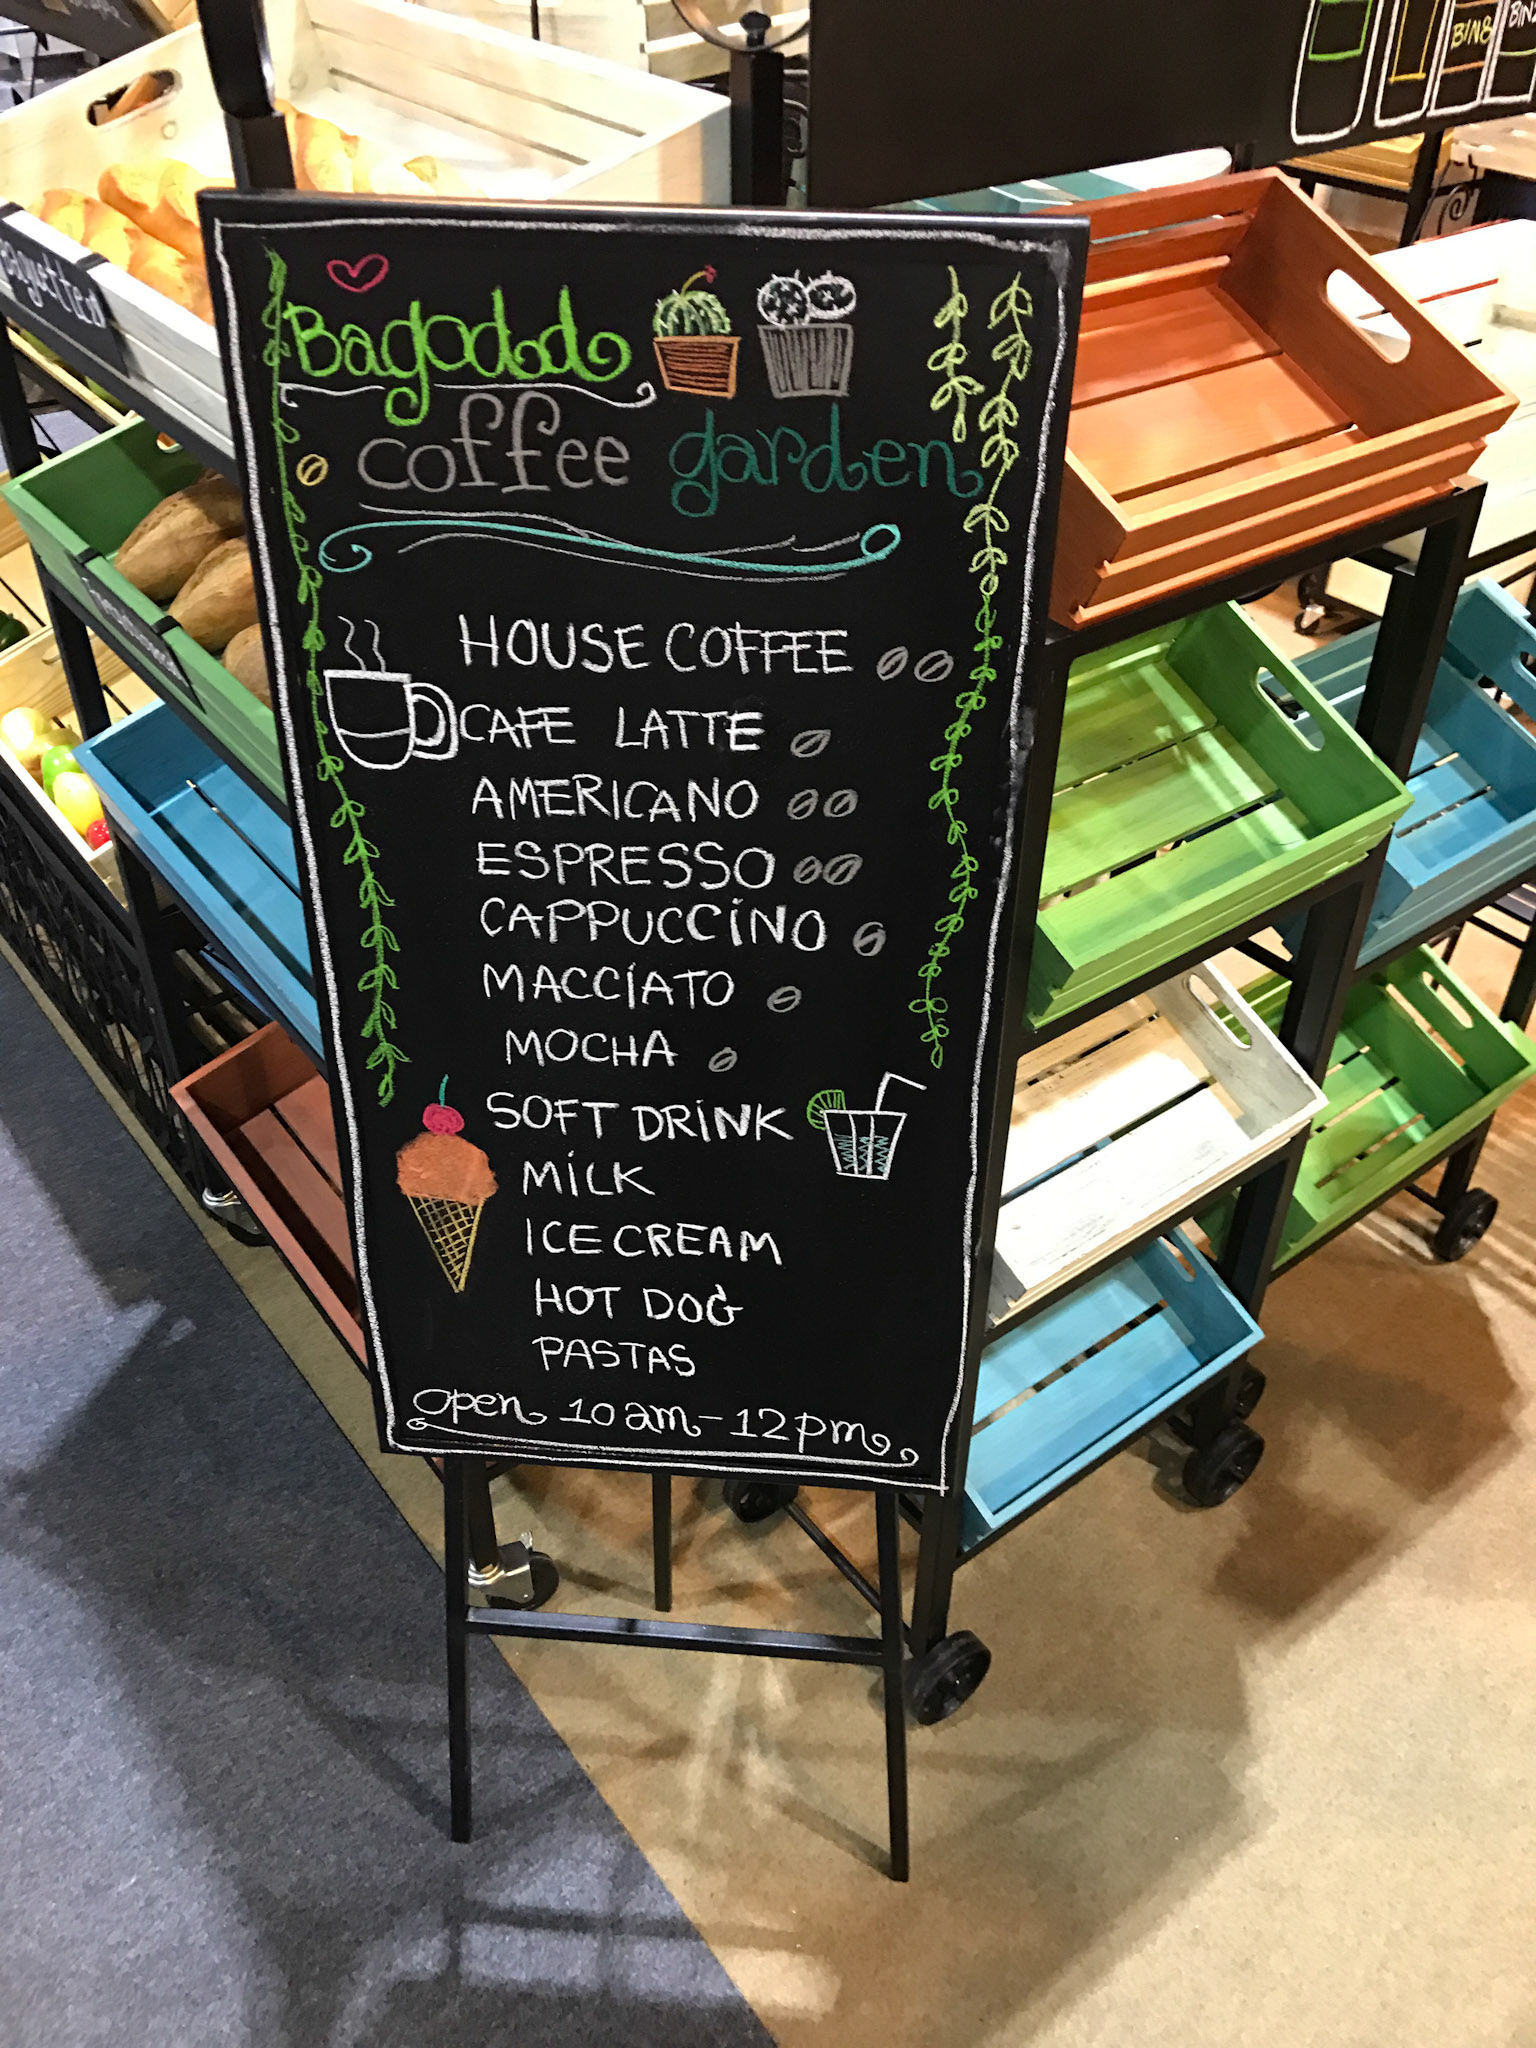 Bagodod
coffee garden
HOUSE COFFEE
CAFE LATTE
AMERICANO
ESPRESSO
CAPPUCCINO
MACCIATO
MOCHA
SOFT DRINK
MILK
ICE CREAM
HOT DOG
PASTAS
Open 10am-12pm
BIN8